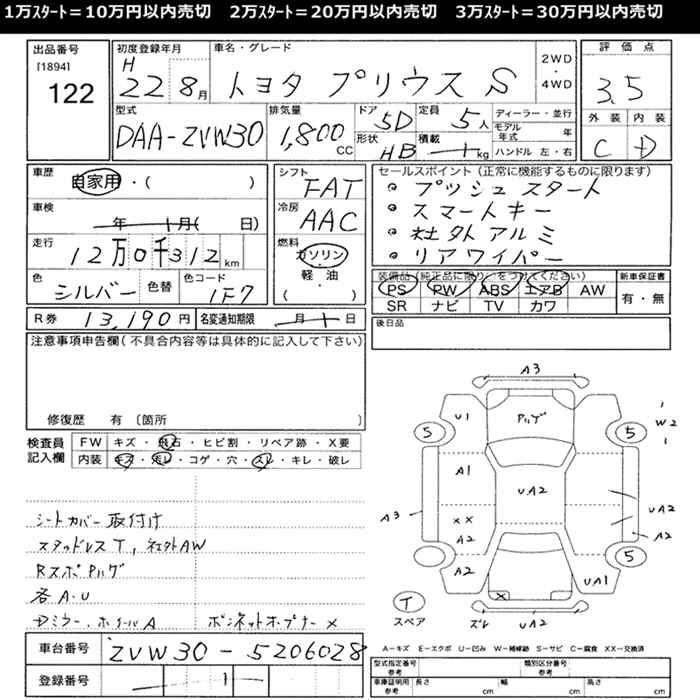 1万ｽﾀｰﾄ＝10万円以内売切　2万ｽﾀｰﾄ＝20万円以内売切　3万ｽﾀｰﾄ＝30万円以内売切
出品番号
[1894]
122
初度登録年月
H
22 8月
車名・グレード
トヨタ プリウス S
2WD
・
4WD
評価点
3.5
外装 内装
C D
型式
DAA-ZVW30
排気量
1,800 CC
ドア 5D
形状 HB
定員 5人
積載 kg
ディーラー・並行
モデル年式 年
ハンドル 左・右
車歴
自家用・( )
車検
年 月( 日)
走行
12万0千312km
色
シルバー
色替
色コード
1F7
シフト
FAT
冷房
AAC
燃料
ガソリン
・
軽 油
( )
セールスポイント (正常に機能するものに限ります)
・プッシュスタート
・スマートキー
・社外アルミ
・リアワイパー
装備品(純正品に限り○をつけてください)
PS PW ABS エアB AW
SR ナビ TV カワ
新車保証書
有・無
R券 13,190円
名変通知期限 月 日
後日品
注意事項申告欄(不具合内容等は具体的に記入して下さい)
修復歴 有 〔箇所 〕
検査員
記入欄
FW キズ・飛石・ヒビ割・リペア跡・X要
内装 キズ・汚レ・コゲ・穴・スレ・キレ・破レ
シートカバー取付け
スタッドレスT，社外AW
RスポPルゲ
各A・U
Dミラー・ホイールA ボンネットオープナー×
車台番号
ZVW30-5206028
登録番号
A3
U1
Pルゲ
5
5
W2
A1
UA2
A3
XX
A2
UA2
A2
A2
5
UA1
X
T
スペア
ズレ UA2
A－キズ E－エクボ U－凹み W－補修跡 S－サビ C－腐食 XX－交換済
型式指定番号
参考
類別区分番号
参考
車庫証明用
参考
長さ cm
幅 cm
高さ cm